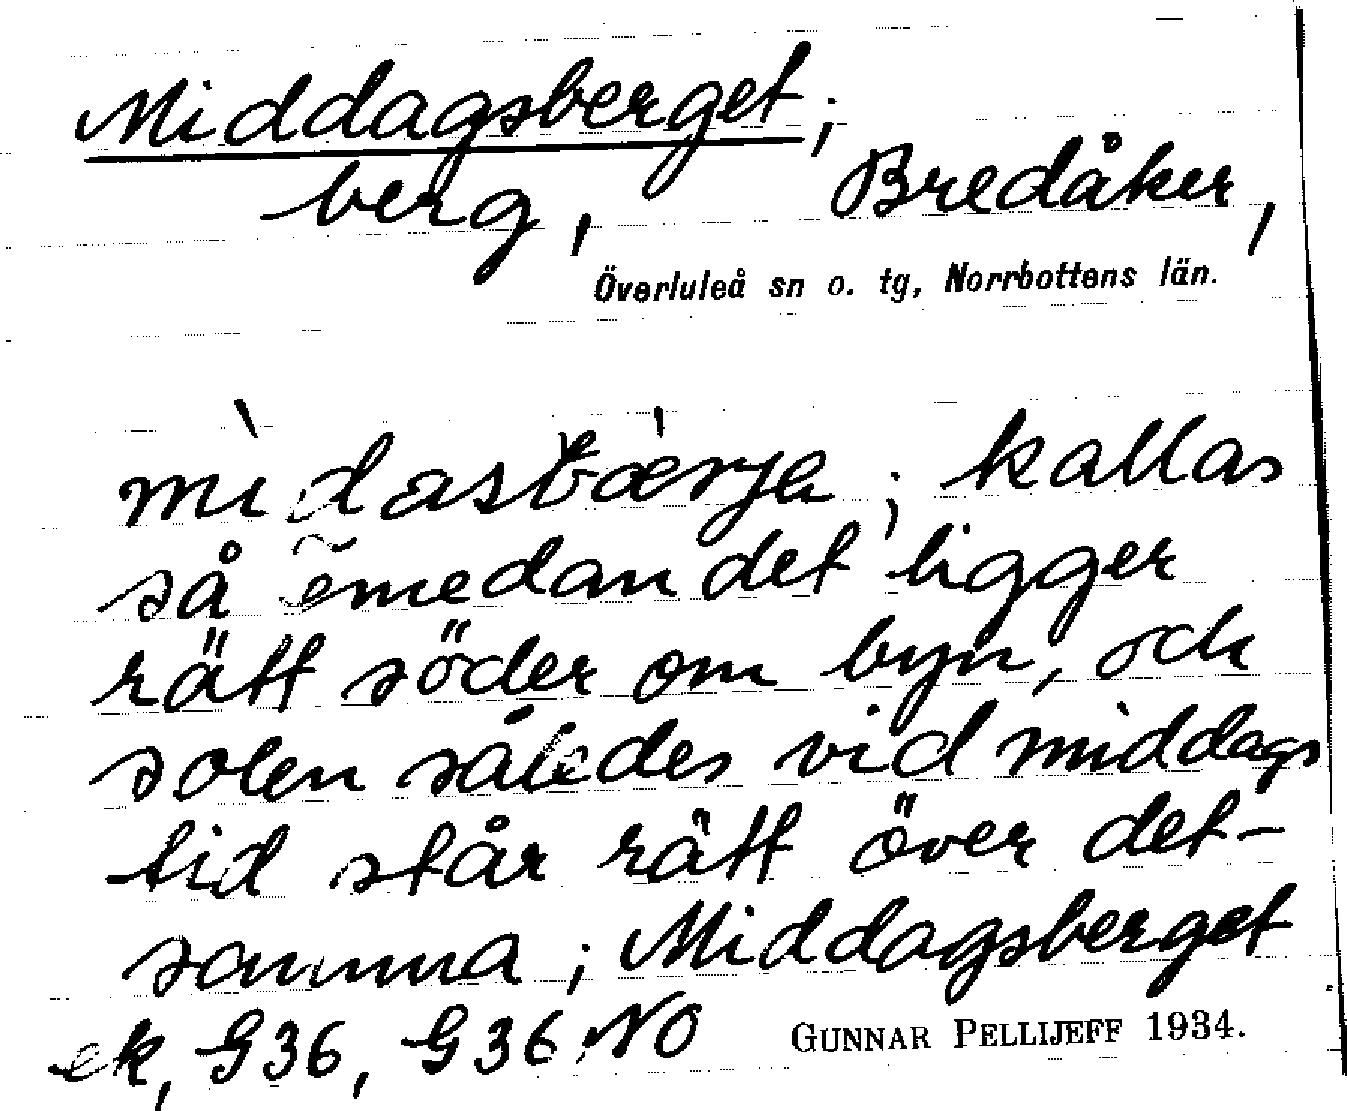 Middagsberget;
berg, Bredåker,
Överluleå sn o. tg, Norrbottens län.
mìdasbærja; kallas
så emedan det ligger
rätt söder om byn, och
solen således vid middags
tid står rätt över det-
samma; Middagsberget
ek, G36, G36 NO GUNNAR PELLIJEFF 1934.